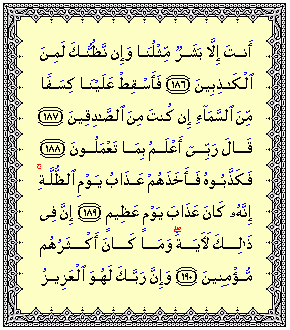 أَنتَ إِلَّا بَشَرٌ مِّثْلُنَا وَإِن نَّظُنُّكَ لَمِنَ
ٱلْكَـٰذِبِينَ ۝١٨٦ فَأَسْقِطْ عَلَيْنَا كِسَفًا
مِّنَ ٱلسَّمَآءِ إِن كُنتَ مِنَ ٱلصَّـٰدِقِينَ ۝١٨٧
قَالَ رَبِّىٓ أَعْلَمُ بِمَا تَعْمَلُونَ ۝١٨٨
فَكَذَّبُوهُ فَأَخَذَهُمْ عَذَابُ يَوْمِ ٱلظُّلَّةِ ۚ
إِنَّهُۥ كَانَ عَذَابَ يَوْمٍ عَظِيمٍ ۝١٨٩ إِنَّ فِى
ذَٰلِكَ لَـَٔايَةً ۖ وَمَا كَانَ أَكْثَرُهُم
مُّؤْمِنِينَ ۝١٩٠ وَإِنَّ رَبَّكَ لَهُوَ ٱلْعَزِيزُ